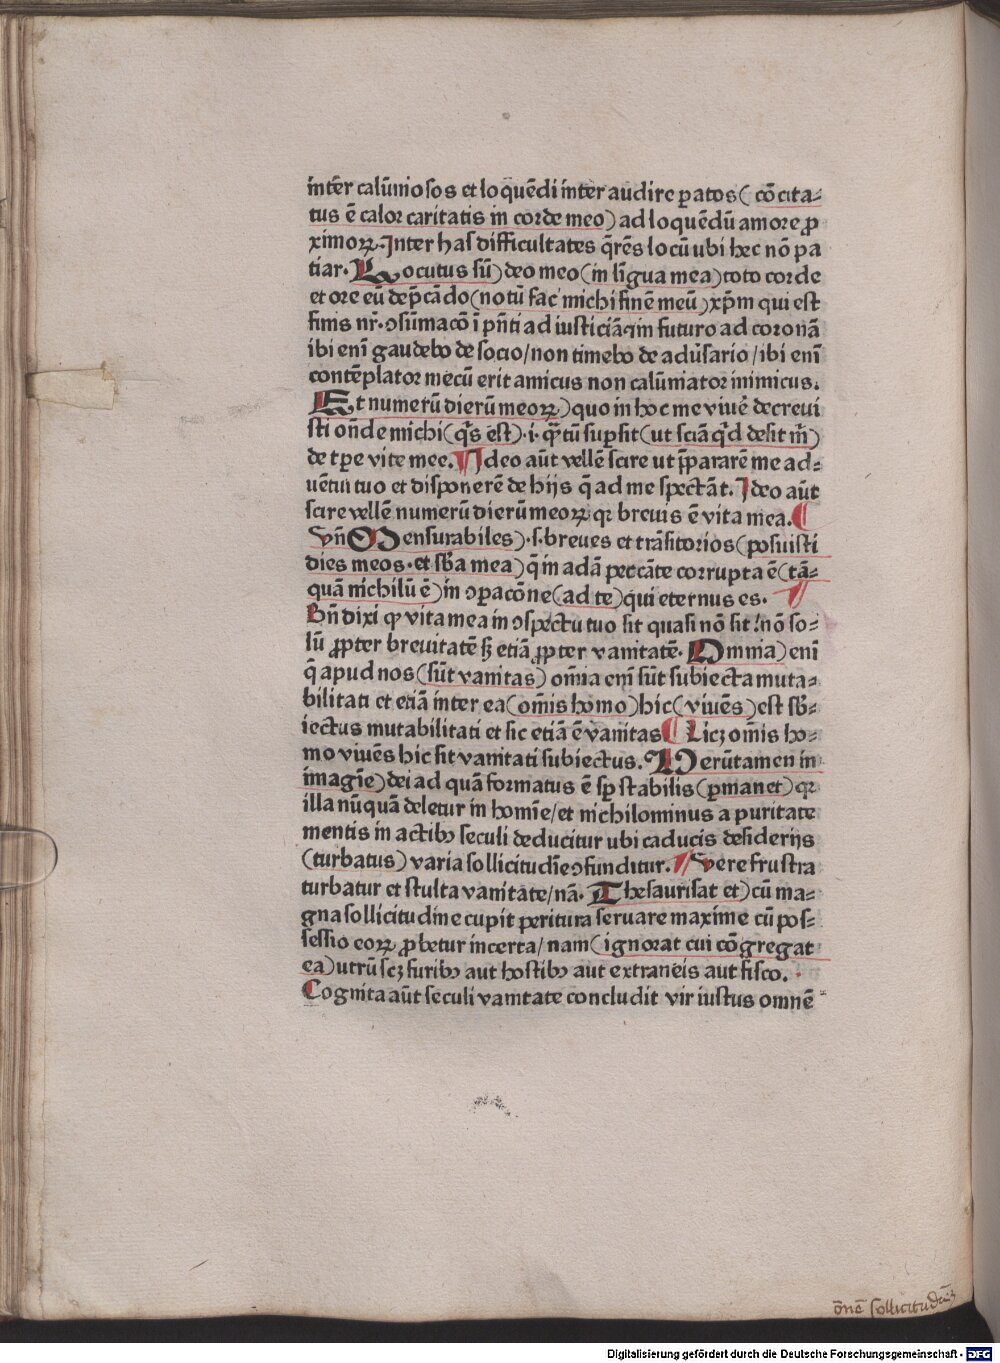 inter calūniosos et loquēdi inter audire patos( cōcita⸗
tus ē calor caritatis in corde meo) ad loquēdū amore ꝓ
ximoꝝ. Inter has difficultates q̄rēs locū ubi hec nō pa
tiar. Locutus sū) deo meo (in līgua mea) toto corde
et ore eū dep̄cādo (notū fac michi finē meū) xp̄m qui est
finis nr̄. ꝯsūmacō ī pn̄ti ad iusticiā ⁊ in futuro ad coronā
ibi enī gaudebo de socio/ non timebo de adūsario / ibi enī
contēplator mecū erit amicus non calūniator inimicus.
Et numerū dierū meoꝝ) quo in hoc me viuē decreui
sti on̄de michi (q̄s est) .i. q̄tū supsit (ut sciā qd̄ desit m̄)
de tꝑe vite mee. Ideo aūt vellē scire ut p̄pararē me ad⸗
uētui tuo et disponerē de hijs q̄ ad me spectāt. Ideo aūt
scire vellē numerū dierū meoꝝ qꝛ breuis ē vita mea.
Vn̄ Mensurabiles) .s. breues et trāsitorios (posuisti
dies meos. et sb̄a mea) q̄ in adā peccāte corrupta ē (tā⸗
quā nichilū ē) in ꝯꝑacōne (ad te) qui eternus es.
Bn̄ dixi ꝙ vita mea in ꝯspectu tuo sit quasi nō sit / nō so⸗
lū ꝓpter breuitatē sꝫ etiā ꝓpter vanitatē. Omnia) enī
q̄ apud nos (sūt vanitas) om̄ia enī sūt subiecta muta⸗
bilitati et etiā inter ea (om̄is homo) hic (viuēs) est sb̄⸗
iectus mutabilitati et sic etiā ē vanitas Licꝫ om̄is ho⸗
mo viuēs hic sit vanitati subiectus. Verūtamen in
imagīe) dei ad quā formatus ē sp̄ stabilis (ꝑmanet) qꝛ
illa nūquā deletur in homīe/ et nichilominus a puritate
mentis in actibꝫ seculi deducitur ubi caducis desiderijs
(turbatus) varia sollicitudīe ꝯfunditur. Vere frustra
turbatur et stulta vanitate/ nā. Thesaurisat et) cū ma⸗
gna sollicitudine cupit peritura seruare maxime cū pos⸗
sessio eoꝝ ꝓbetur incerta/ nam (ignorat cui cōgregat
ea) utrū scꝫ furibꝫ aut hostibꝫ aut extraneis aut fisco.
Cognita aūt seculi vanitate concludit vir iustus omnē
ōnē sollicitudinē
Digitalisierung gefördert durch die Deutsche Forschungsgemeinschaft - DFG